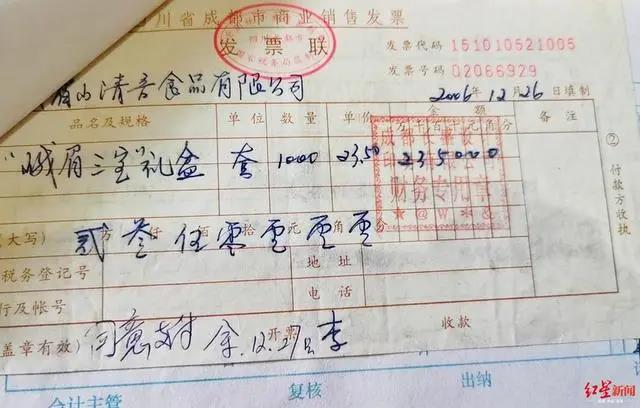 川省成都市商业销售发票
发票联
发票代码 151010521005
发票号码 02066929
眉山清音食品有限公司
2006年12月26日填制
品名及规格 单位 数量 单价 金额 备注
万千百十元角分
"峨眉三宝"礼盒 套 1000 23.50 2350000
财务专用章
(大写) 贰万叁仟伍佰零拾零元零角零分
税务登记号 地址
行及帐号 电话
盖章有效) 开票 收款
同意支付 余 12.27日 李
② 付款方收执
会计主管 复核 出纳
红星新闻